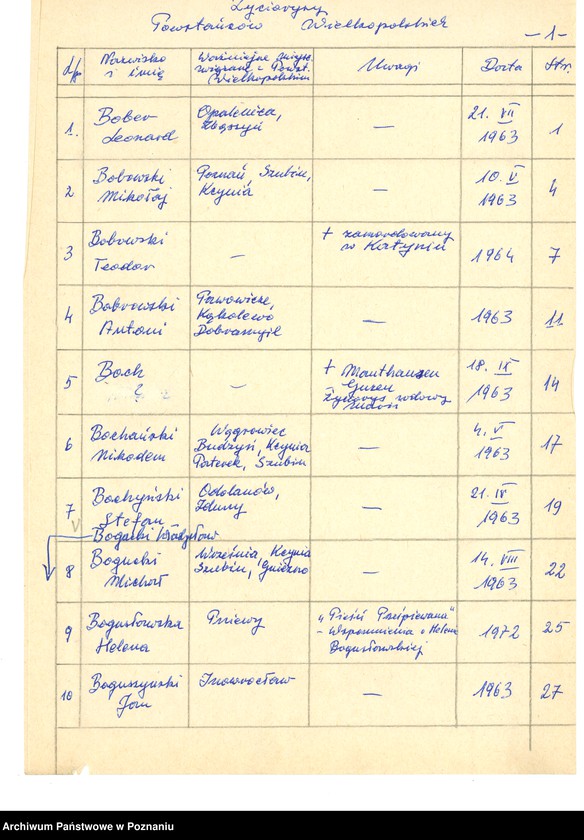 Życiorysy
Powstańców Wielkopolskich
- 1 -
L/p
Nazwisko i imię
Ważniejsze miejsc. związane z Powst. Wielkopolskim
Uwagi
Data
Str.
1.
Bober Leonard
Opalenica, Zbąszyń
—
21. VII 1963
1
2
Bobowski Mikołaj
Poznań Szubin, Kcynia
—
10. V 1963
4
3
Bobowski Teodor
—
+ zamordowany w Katyniu
1964
7
4
Bobrowski Antoni
Pawowice, Kąkolewo Dobramyśl
—
1963
11
5
Boch ?
—
+ Mauthausen Gusen Życiorys wdowy
18. IX 1963
14
6
Bochański Nikodem
Wągrowiec Budzyń, Kcynia Paterek, Szubin
—
4. V 1963
17
7
Boczyński Stefan
Odolanów, Zduny
—
21. IV 1963
19
Bogacki Władysław
8
Bogucki Michał
Września, Kcynia Szubin, Gniezno
—
14. VIII 1963
22
9
Bogusławska Helena
Pniewy
"Pieśń Prześpiewana" - Wspomnienia o Helenie Bogusławskiej
1972
25
10
Boguszyński Jan
Inowrocław
—
1963
27
Archiwum Państwowe w Poznaniu